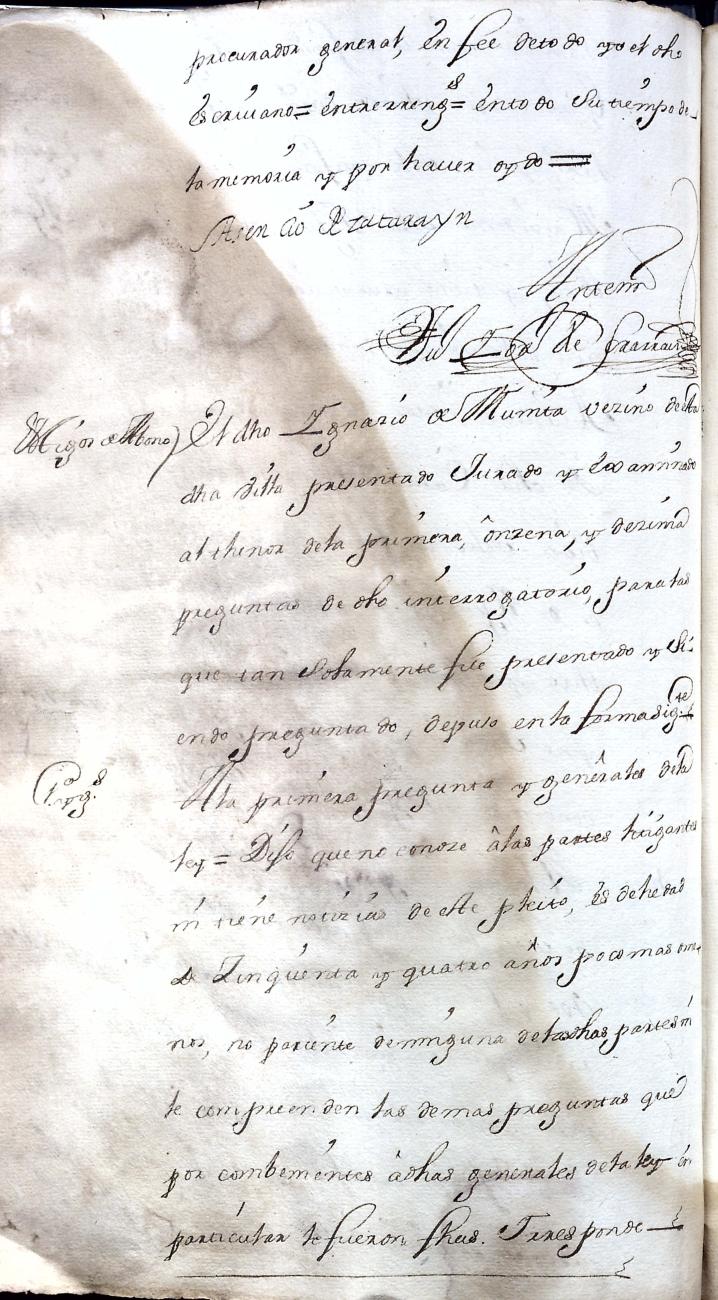 procurador general, en fee de todo yo el dho
escrivano = entrerrengs = en todo su tiempo de
la memoria y por haver oydo =
Asencio
Antemi
de
testigos de Abono) El dho Ignazio de Mumita vezino desta
dha Villa presentado Jurado y examinado
al thenor de la primera, onzena, y dezima
preguntas de dho interrogatorio, para las
que tan solamente fue presentado y si-
endo preguntado, depuso en la forma sigte
1ª y gs. A la primera pregunta y generales de la
ley = Dijo que no conoze â las partes litigantes
ni tiene notizias de este pleito, es de hedad
de Zinquenta y quatro años poco mas ome-
nos, no pariente de ninguna de las dhas partes ni
le compreenden las demas preguntas que
por combenientes â dhas generales de la ley en
particular le fueron fhas. I responde